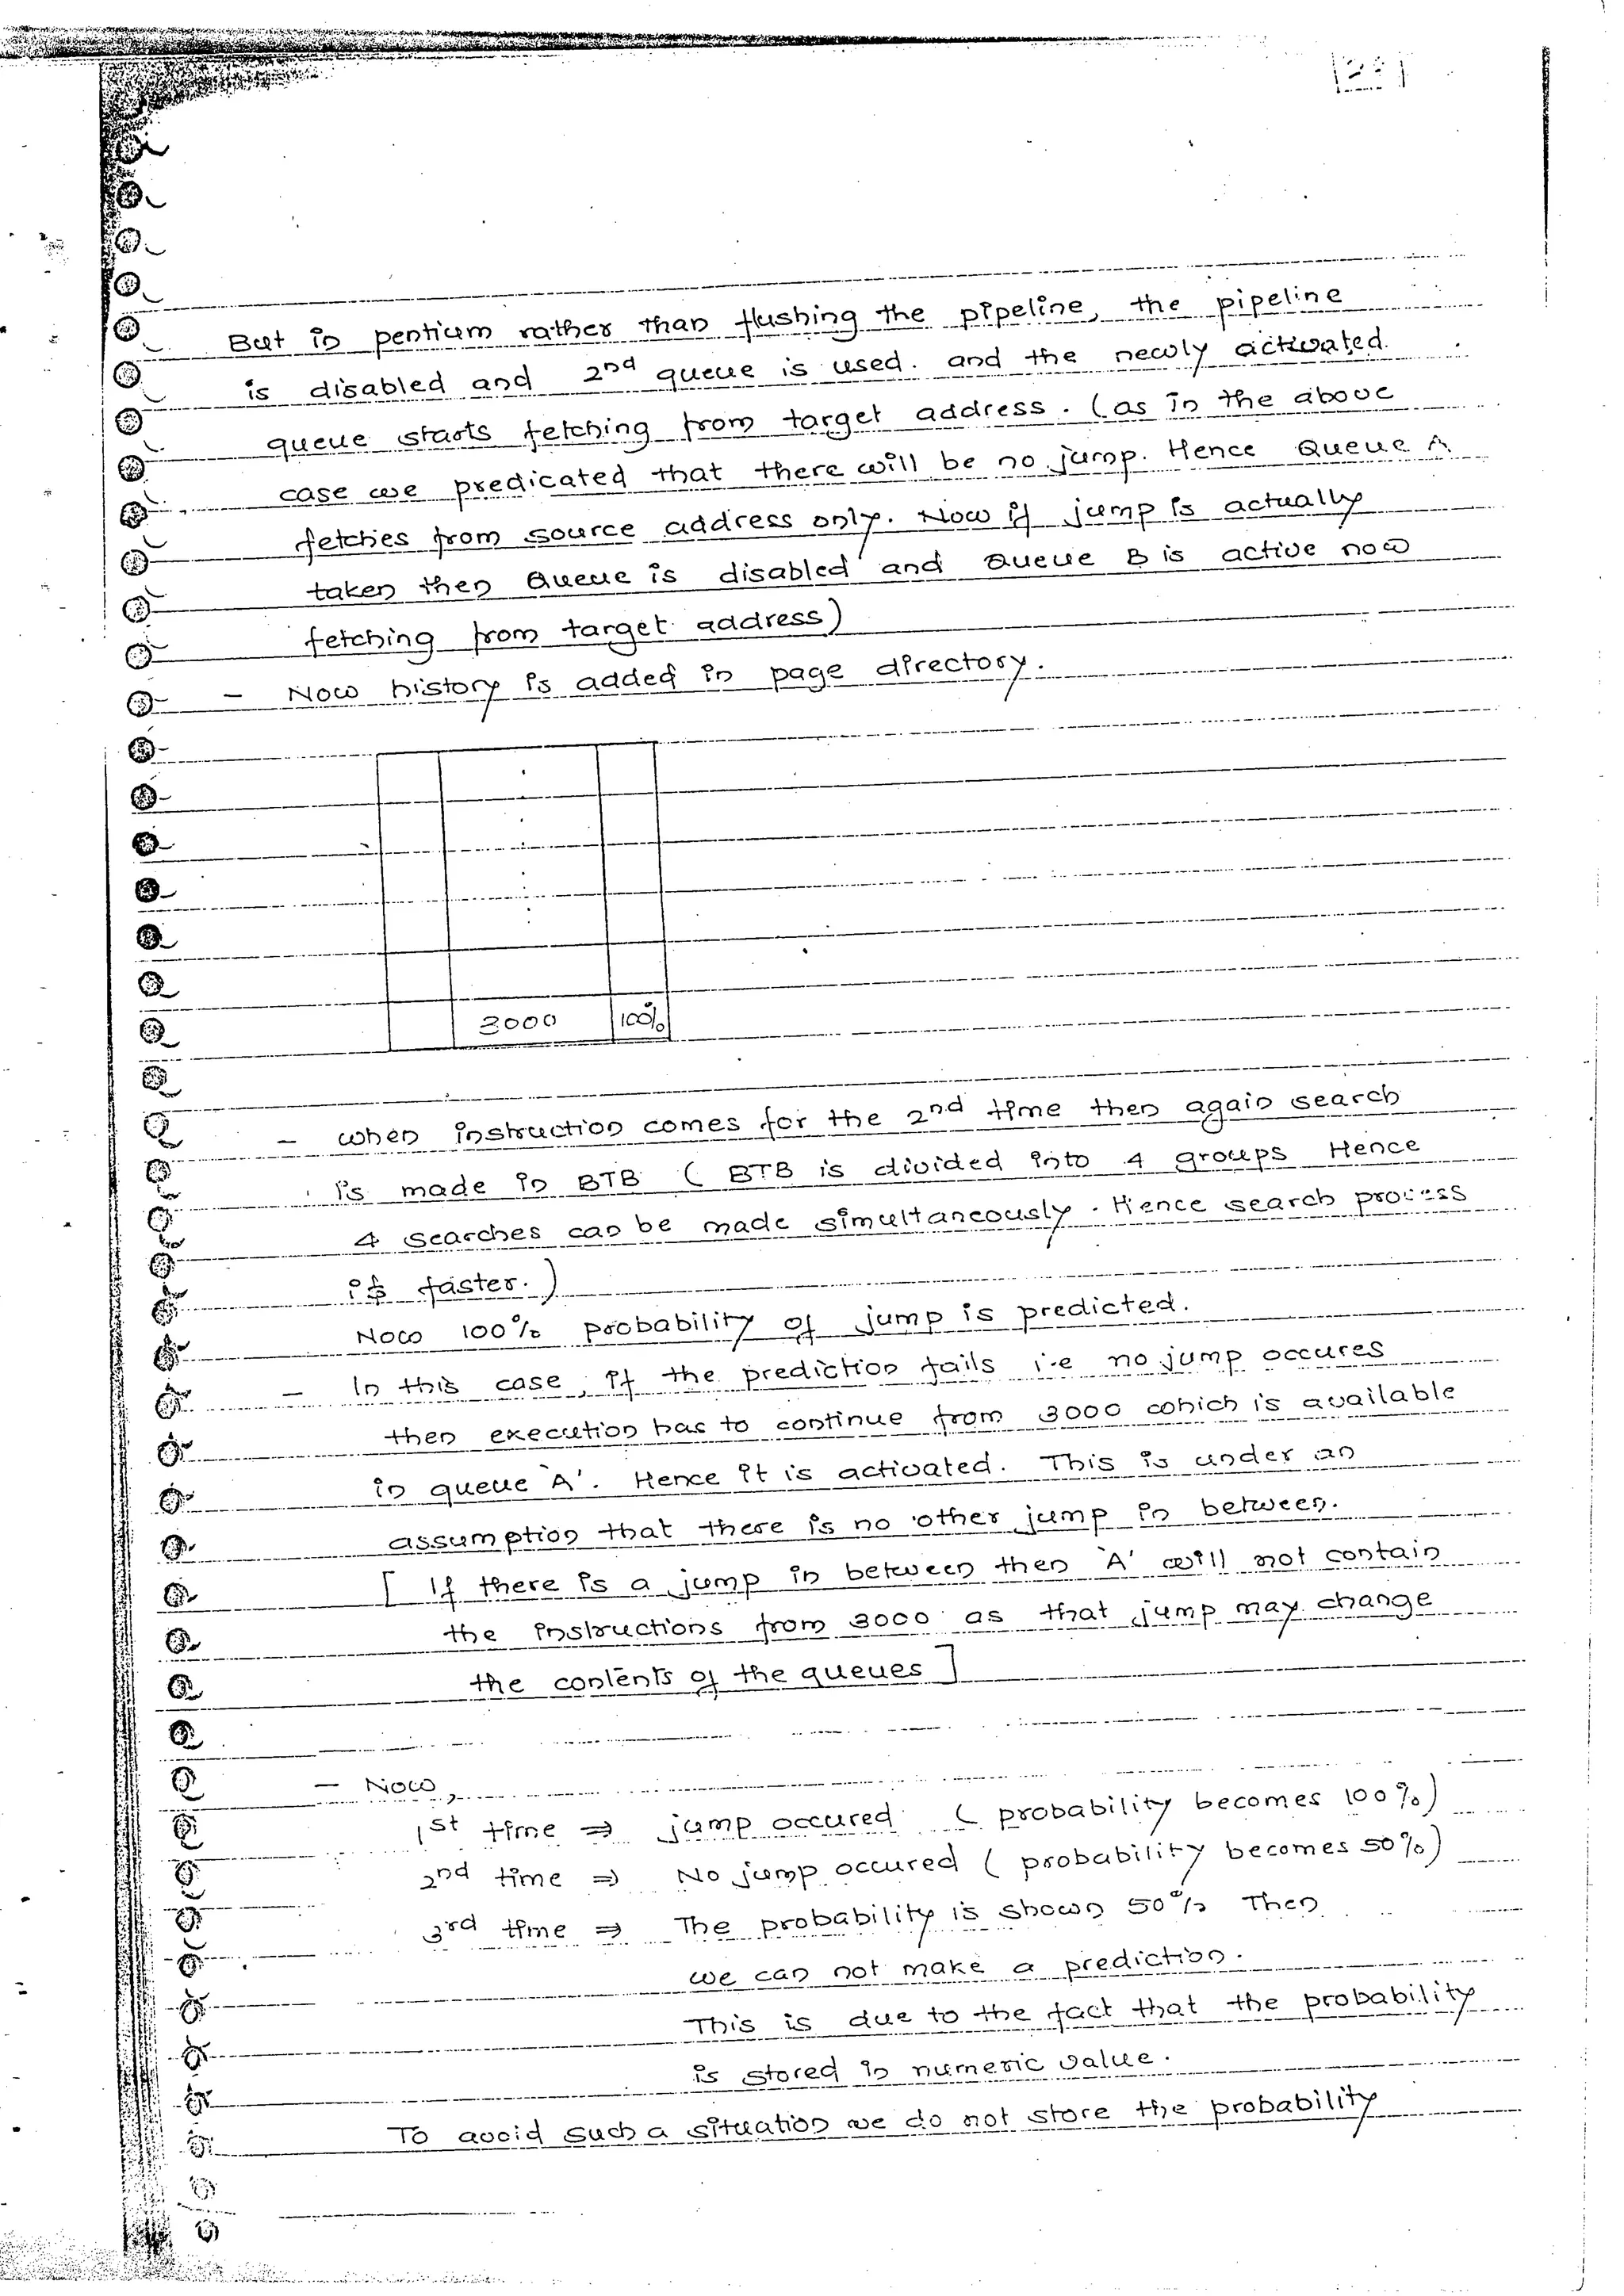 But in pentium rather than flushing the pipeline, the pipeline
is disabled and 2nd queue is used. and the newly activated.
queue starts fetching from target address. (as in the above
case we predicated that there will be no jump. Hence Queue A
fetches from source address only. Now if jump is actually
taken then Queue is disabled and Queue B is active now
fetching from target address)
- Now history is added in page directory.
3000 100%
- When instruction comes for the 2nd time then again search
is made in BTB ( BTB is divided into 4 groups Hence
4 searches can be made simultaneously. Hence search process
is faster.)
Now 100% probability of jump is predicted.
- In this case, if the prediction fails i.e no jump occures
then execution has to continue from 3000 which is available
in queue 'A'. Hence it is activated. This is under an
assumption that there is no other jump in between.
[ If there is a jump in between then 'A' will not contain
the instructions from 3000 as that jump may change
the contents of the queues ]
- Now,
1st time ⇒ jump occured ( probability becomes 100%)
2nd time ⇒ No jump occured ( probability becomes 50%)
3rd time ⇒ The probability is shown 50% Then
we can not make a prediction.
This is due to the fact that the probability
is stored in numeric value.
To avoid such a situation we do not store the probability